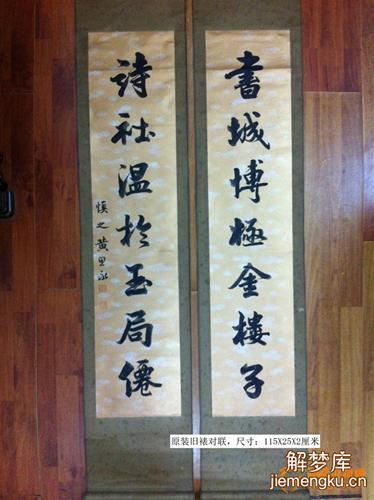 書城博極金樓子
詩社温於玉局僊
慎之黄思永
原装旧裱对联，尺寸：115X25X2厘米
解梦库
jiemengku.cn